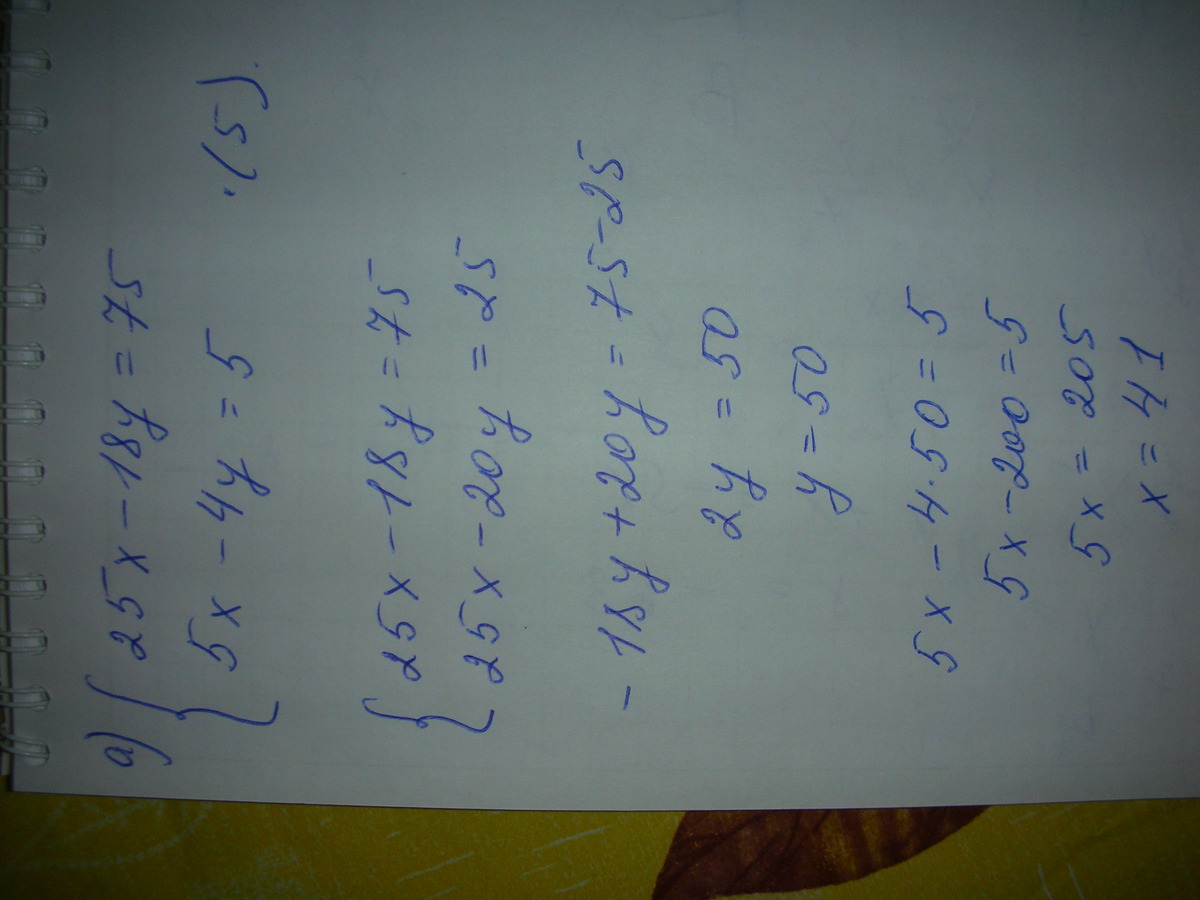 а) { 25x - 18y = 75
5x - 4y = 5 ·(5).
{ 25x - 18y = 75
25x - 20y = 25
- 18y + 20y = 75 - 25
2y = 50
y = 50
5x - 4·50 = 5
5x - 200 = 5
5x = 205
x = 41